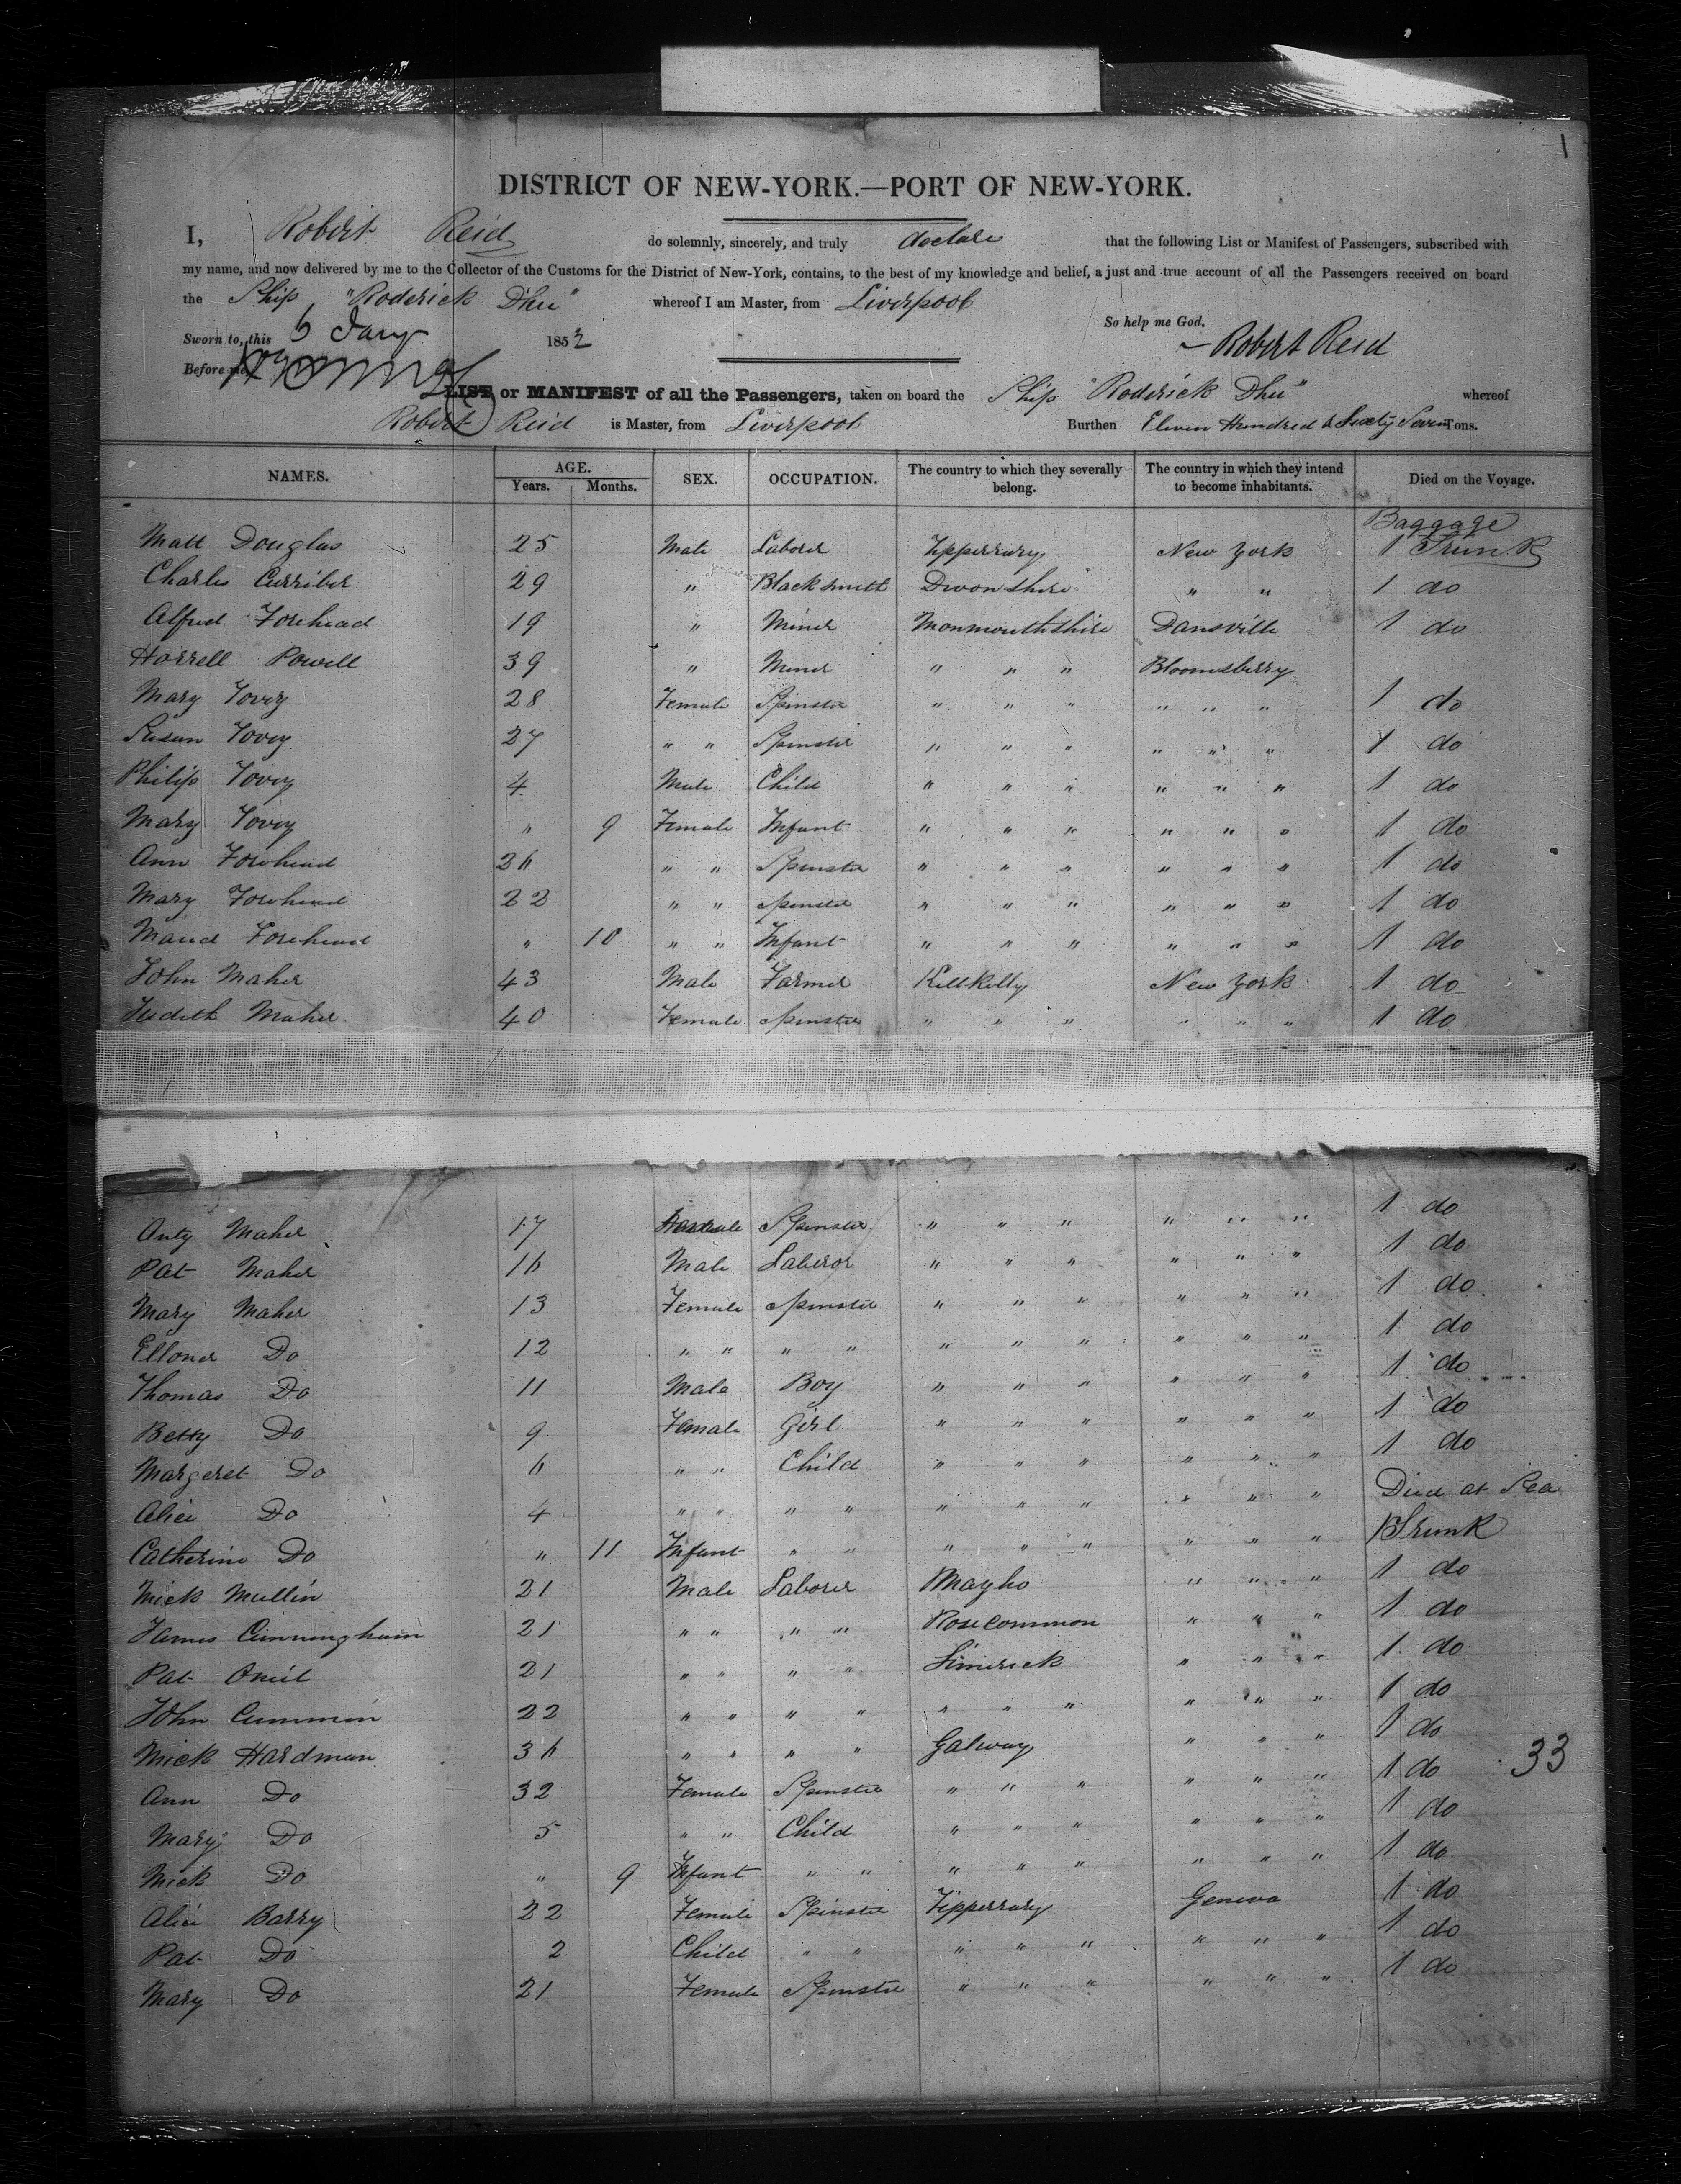 1
DISTRICT OF NEW-YORK.—PORT OF NEW-YORK.
I, Robert Reid do solemnly, sincerely, and truly declare that the following List or Manifest of Passengers, subscribed with
my name, and now delivered by me to the Collector of the Customs for the District of New-York, contains, to the best of my knowledge and belief, a just and true account of all the Passengers received on board
the Ship "Roderick Dhu" whereof I am Master, from Liverpool
So help me God.
Sworn to, this 6 Jany 1852
Robert Reid
Before me
LIST or MANIFEST of all the Passengers, taken on board the Ship "Roderick Dhu" whereof
Robert Reid is Master, from Liverpool Burthen Eleven Hundred & Sixty Seven Tons.
NAMES. AGE. Years. Months. SEX. OCCUPATION. The country to which they severally belong. The country in which they intend to become inhabitants. Died on the Voyage.
Baggage
Matt Douglas 25 Male Laborer Tipperrary New York 1 Trunk
Charles 29 " Blacksmith Devonshire " " 1 do
Alfred Forehead 19 " Miner Monmouthshire Dansville 1 do
Harrell Powell 39 " Miner " " " Bloomsberry
Mary Tovey 28 Female Spinster " " " " " " 1 do
Susan Tovey 27 " " Spinster " " " " " " 1 do
Philip Tovey 4 Male Child " " " " " " 1 do
Mary Tovey " 9 Female Infant " " " " " " 1 do
Ann Forehead 26 " " Spinster " " " " " " 1 do
Mary Forehead 22 " " Spinster " " " " " " 1 do
Maud Forehead " 10 " " Infant " " " " " " 1 do
John Maher 43 Male Farmer Killkelly New York 1 do
Judeth Maher 40 Female Spinster " " " " " " 1 do
Anty Maher 17 Female Spinster " " " " " " 1 do
Pat Maher 16 Male Laberor " " " " " " 1 do
Mary Maher 13 Female Spinster " " " " " " 1 do
Elloner Do 12 " " " " " " " " " " 1 do
Thomas Do 11 Male Boy " " " " " " 1 do
Betty Do 9 Female Girl " " " " " " 1 do
Margeret Do 6 " " Child " " " " " " 1 do
Alice Do 4 " " " " " " " " " " Died at Sea
Catherine Do " 11 Infant " " " " " " " " 1 Trunk
Mick Mullin 21 Male Laborer Mayho " " " 1 do
James Cunningham 21 " " " " Rosecommon " " " 1 do
Pat Oneil 21 " " " " Limerick " " " 1 do
John Cummin 22 " " " " " " " " " " 1 do
Mick Hardman 36 " " " " Galway " " " 1 do
33
Ann Do 32 Female Spinster " " " " " " 1 do
Mary Do 5 " " Child " " " " " " 1 do
Mick Do " 9 Infant " " " " " " " " 1 do
Alice Barry 22 Female Spinster Tipperrary Geneva 1 do
Pat Do 2 Child " " " " " " " " 1 do
Mary Do 21 Female Spinster " " " " " " 1 do